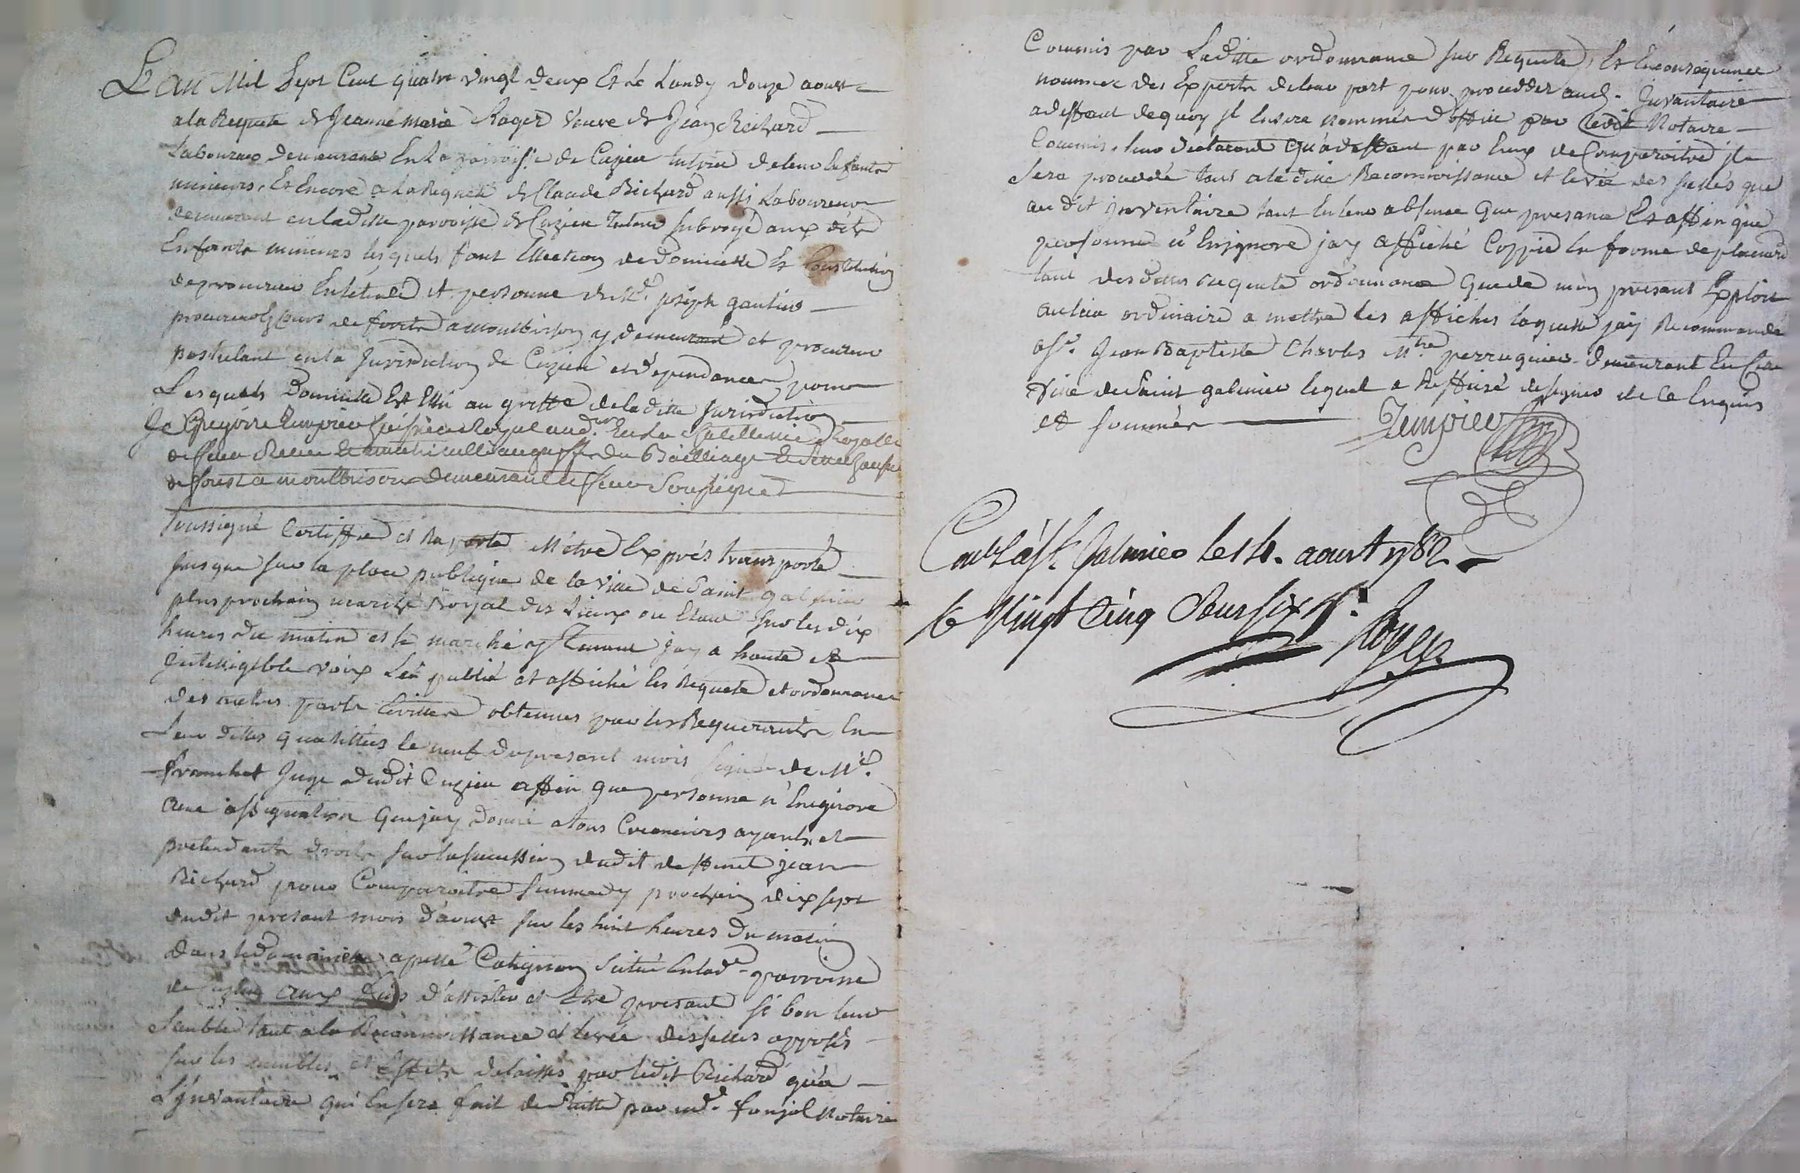 L'an Mil Sept Cent quatre vingt deux Et Le Lundy douze aoust
a la Requete de Jeanne marie Roger veuve de Jean Richard
Laboureur demeurant En la parroisse de Cuzieu tutrice de leurs Enfants
mineurs, Et Encore a La Requete de Claude Richard aussi Laboureur
demeurant en ladite parroisse de Cuzieu Tuteur subrogé aux dits
Enfants mineurs lesquels font Election de domicille Et Constitution
de procureur En létude et personne de Me. joseph gautier
procureur Cours de forets a montbrison y demeurant et procureur
postulant en la Jurisdiction de Cuzieu et dépendances pour
Lesquels Domicille Est Elu au greffe de ladite Jurisdiction
Je Gregoire Tempier huissier Royal aud. En La Chatellenie Royalle
de Sieur Recue du Bailliage et Senechaussée
de forest a montbrison demeurant a Soussigné
Soussigné Certiffie et Raporte M'être Exprés transporté
jusque sur la place publique de la ville de Saint galmier
plus prochain marché Royal des Lieux ou Etant sur les dix
heures du matin et le marché y tenant J'ay a haute et
Intelligible voix Leu publié et affiché les Requete et ordonnance
des autres parts Ecrittes obtenues par les Requerants En
Leur dittes qualittés le neuf du present mois signée de Mr.
franchet Juge dudit Cuzieu affin que personne n'En ignore
avec assignation que jay donné a tous Creanciers ayants et
pretendants droits sur la succession dudit deffunt jean
Richard pour Comparoitre Sammedy prochain dix sept
dudit present mois d'aoust sur les huit heures du matin
dans le domaine apellé Catignon Scitué En lad. parroisse
de Cuzieu aux fins d'assister et être present si bon leur
Semble tant a la Reconnoissance et levée des sellés apposés
sur les meubles et Effets delaissés par ledit Richard qu'a
L'Inventaire qui En sera fait de suitte par me. fonjol Notaire
Commis par Laditte ordonnance sur Requete, Et En consequence
nommer des Experts de leur part pour procedder aud. Inventaire
a deffaut de quoy il En sera nommés d'office par ledit Notaire
Commis, leur declarant qu'a deffaut par Eux de Comparoitre il
Sera proceddé tant a ladite Reconnoissance et levée des sellés que
audit inventaire tant En leur absence que presance Et affin que
personne n'En ignore jay affiché Coppie En forme de placard
tant desdittes requete ordonnance que de mon present Exploit
au lieu ordinaire a mettre les affiches laquelle jay Recommandé
a Sr. Jean Baptiste Charles Mtre perruquier demeurant En Cette
Ville de Saint galmier lequel a Reffusé de signer de ce Enquis
et Sommés
Tempier
Conlé a St. Galmier le 14. aoust 1782
R Vingt Cinq Sous six d.
Royer